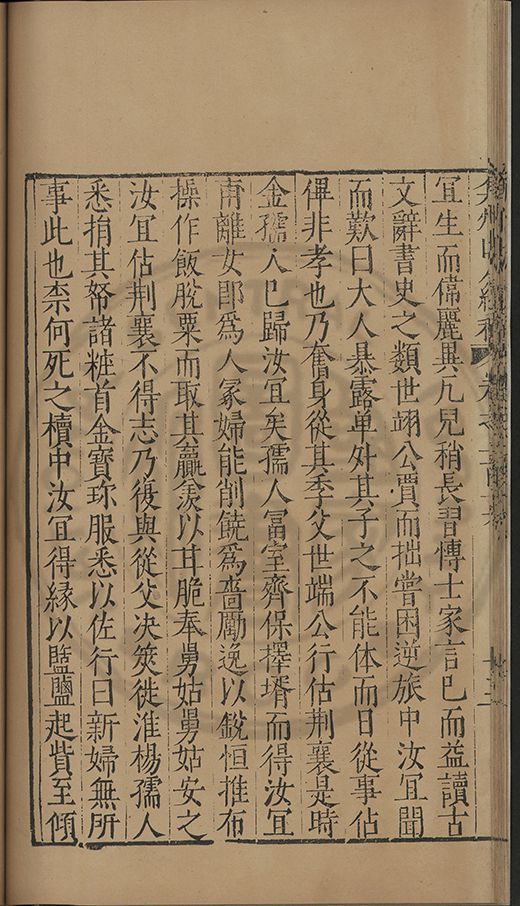 宜生而俻麗異凢兒稍長習博士家言巳而益讀古
文辭書史之類世翊公賈而拙嘗困逆旅中汝宜聞
而歎曰大人暴露单外其子之不能体而日從事佔
俾非孝也乃奮身從其季父世端公行估荆襄是時
金孺人巳歸汝宜矣孺人冨室齊保擇壻而得汝宜
甫離女即爲人冡婦能削饒爲嗇勵逸以銳恒推布
操作飯脫粟而取其贏羡以甘脆奉舅姑舅姑安之
汝宜估荆襄不得志乃復與從父决筴徙淮楊孺人
悉捐其帑諸粧首金寳珎服悉以佐行曰新婦無所
事此也柰何死之櫝中汝宜得縁以鹽鹽起貲至傾